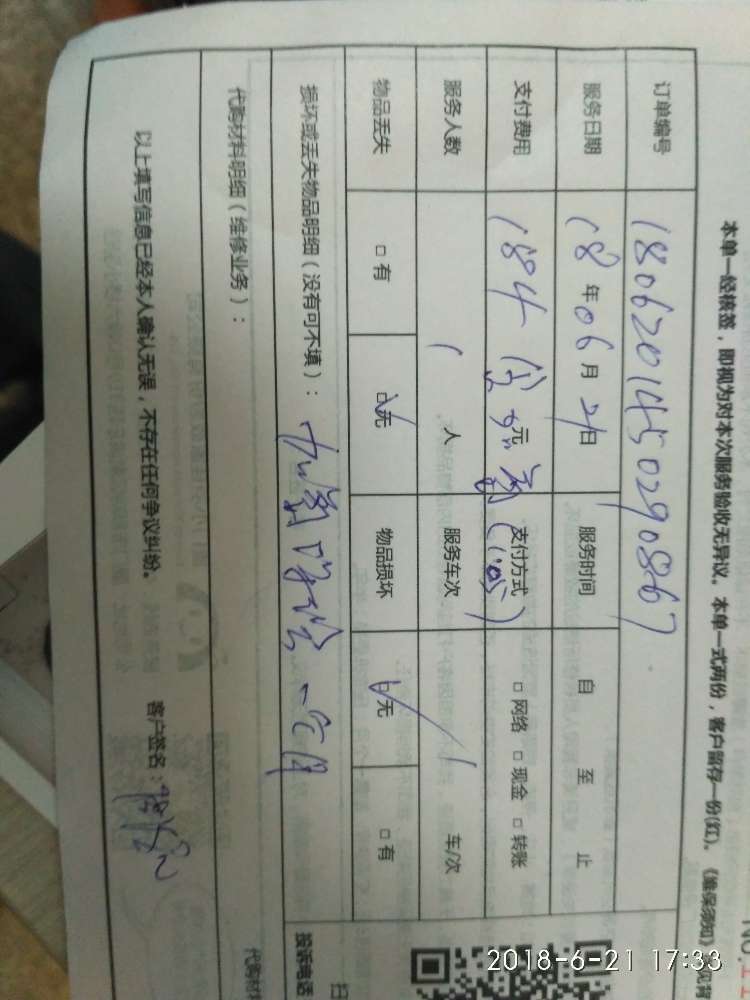 NO.1
本单一经核签，即视为对本次服务验收无异议。本单一式两份，客户留存一份(红)。《维保须知》见背
订单编号 1806201450290867
服务日期 18年06月21日 服务时间 自 至 止
支付费用 184 元 (105) 支付方式 □网络 □现金 □转账
服务人数 1人 服务车次 1 车/次
物品丢失 □有 □无 物品损坏 □无 □有
损坏或丢失物品明细（没有可不填）： 一个月
代购材料明细（维修业务）： 代购材
以上填写信息已经本人确认无误，不存在任何争议纠纷。 客户签名：
投诉电话
扫
2018-6-21 17:33